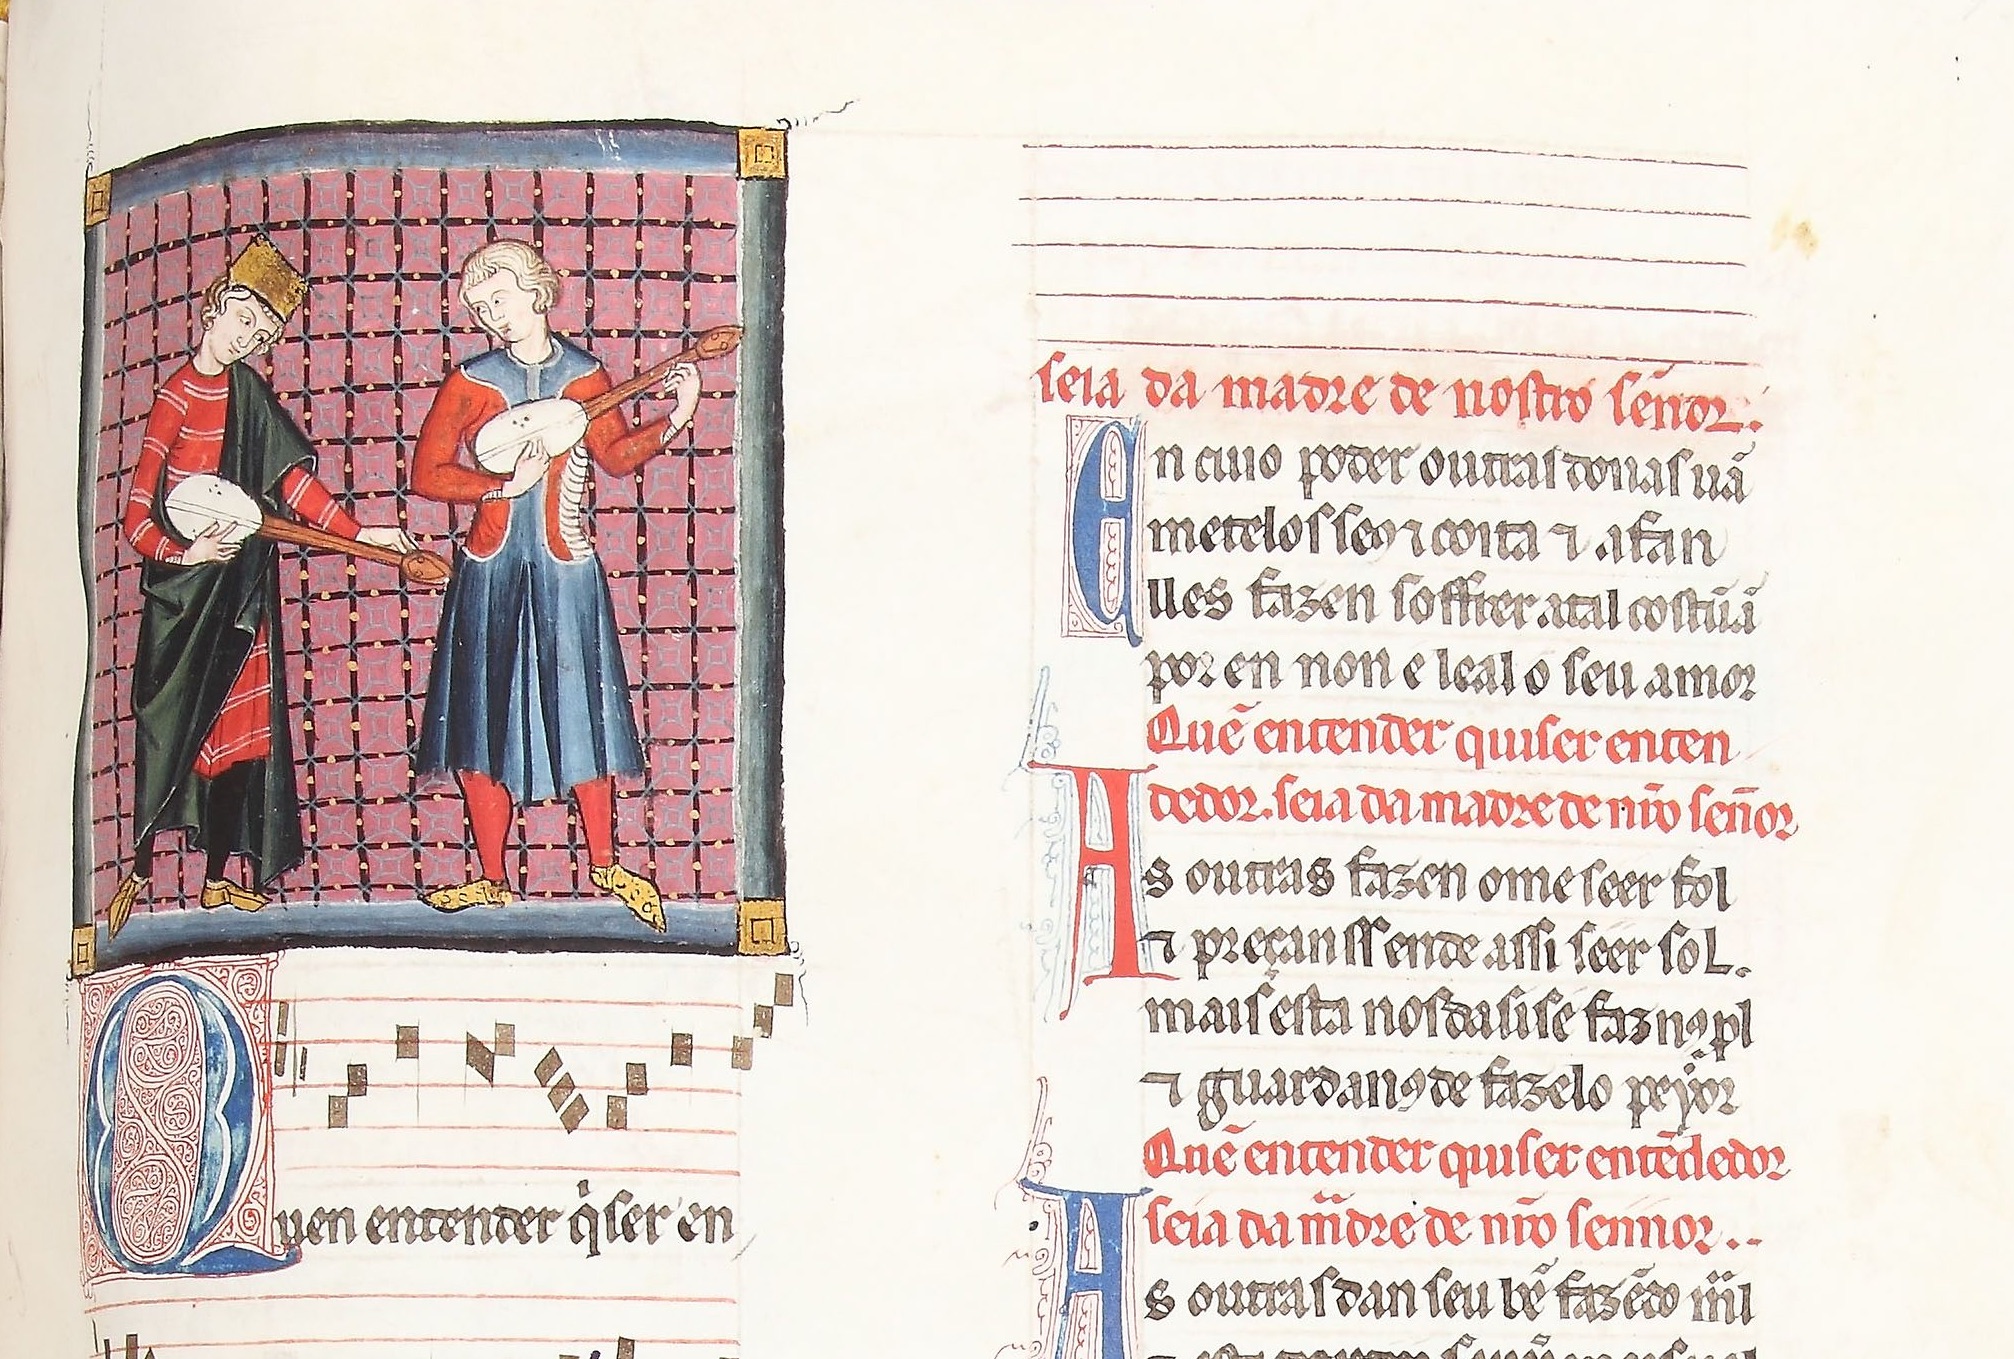 Quen entender q̇ser en
seia da madre de nostro señor.
En cuio poder outras donas uã
metelos sen ⁊ coita ⁊ afan
lles fazen soffrer atal costũa
por en non e leal o seu amor
Quẽ entender quiser enten
dedor. seia da madre de nr̃o señor
As outras fazen ome seer fol
⁊ preçansse ende assi seer sol.
mais esta nos da sise faz
⁊ guardanꝯ de fazelo peyor
Quẽ entender quiser entẽdedor
seia da m̃dre de nr̃o sennor..
As outras dan seu bẽ fazẽdo